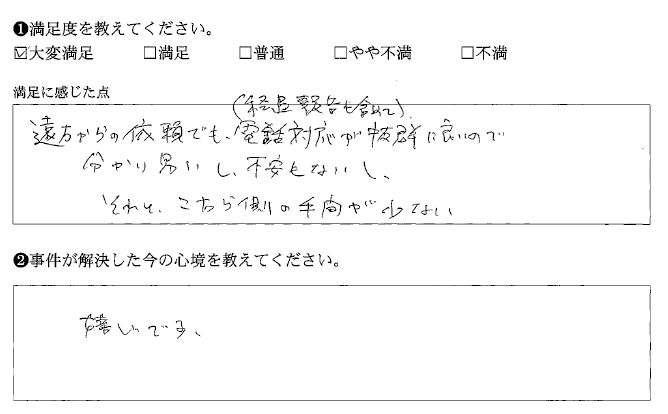 ❶満足度を教えてください。
☑大変満足 □満足 □普通 □やや不満 □不満
満足に感じた点
(経過報告も含めて)
遠方からの依頼でも、電話対応が抜群に良いので
分かり易いし、不安もないし、
それと、こちら側の手間が少ない
❷事件が解決した今の心境を教えてください。
嬉しいです、